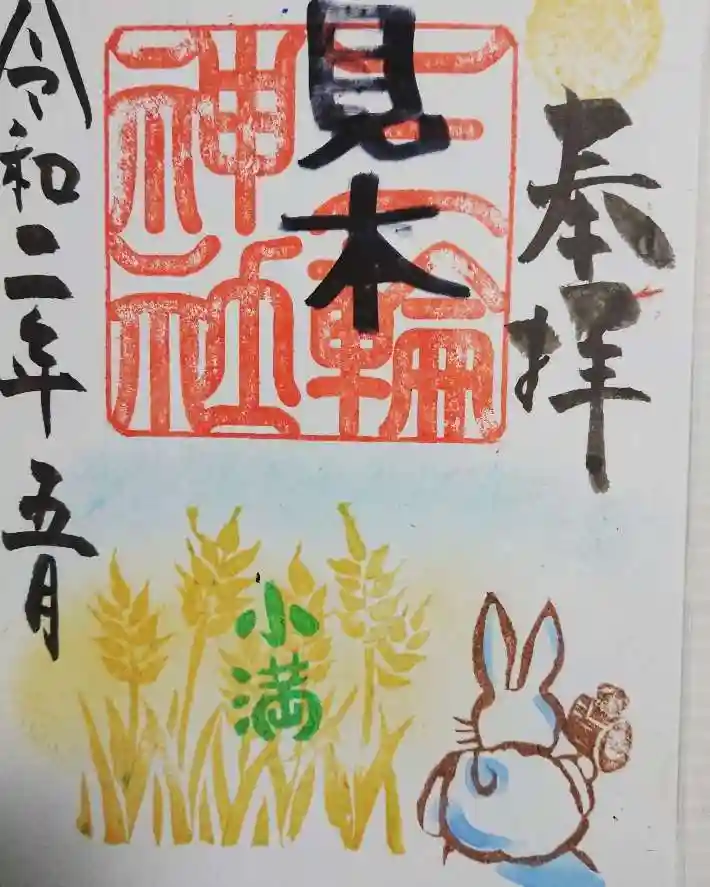 奉拝
三輪神社
見本
令和二年五月
小満